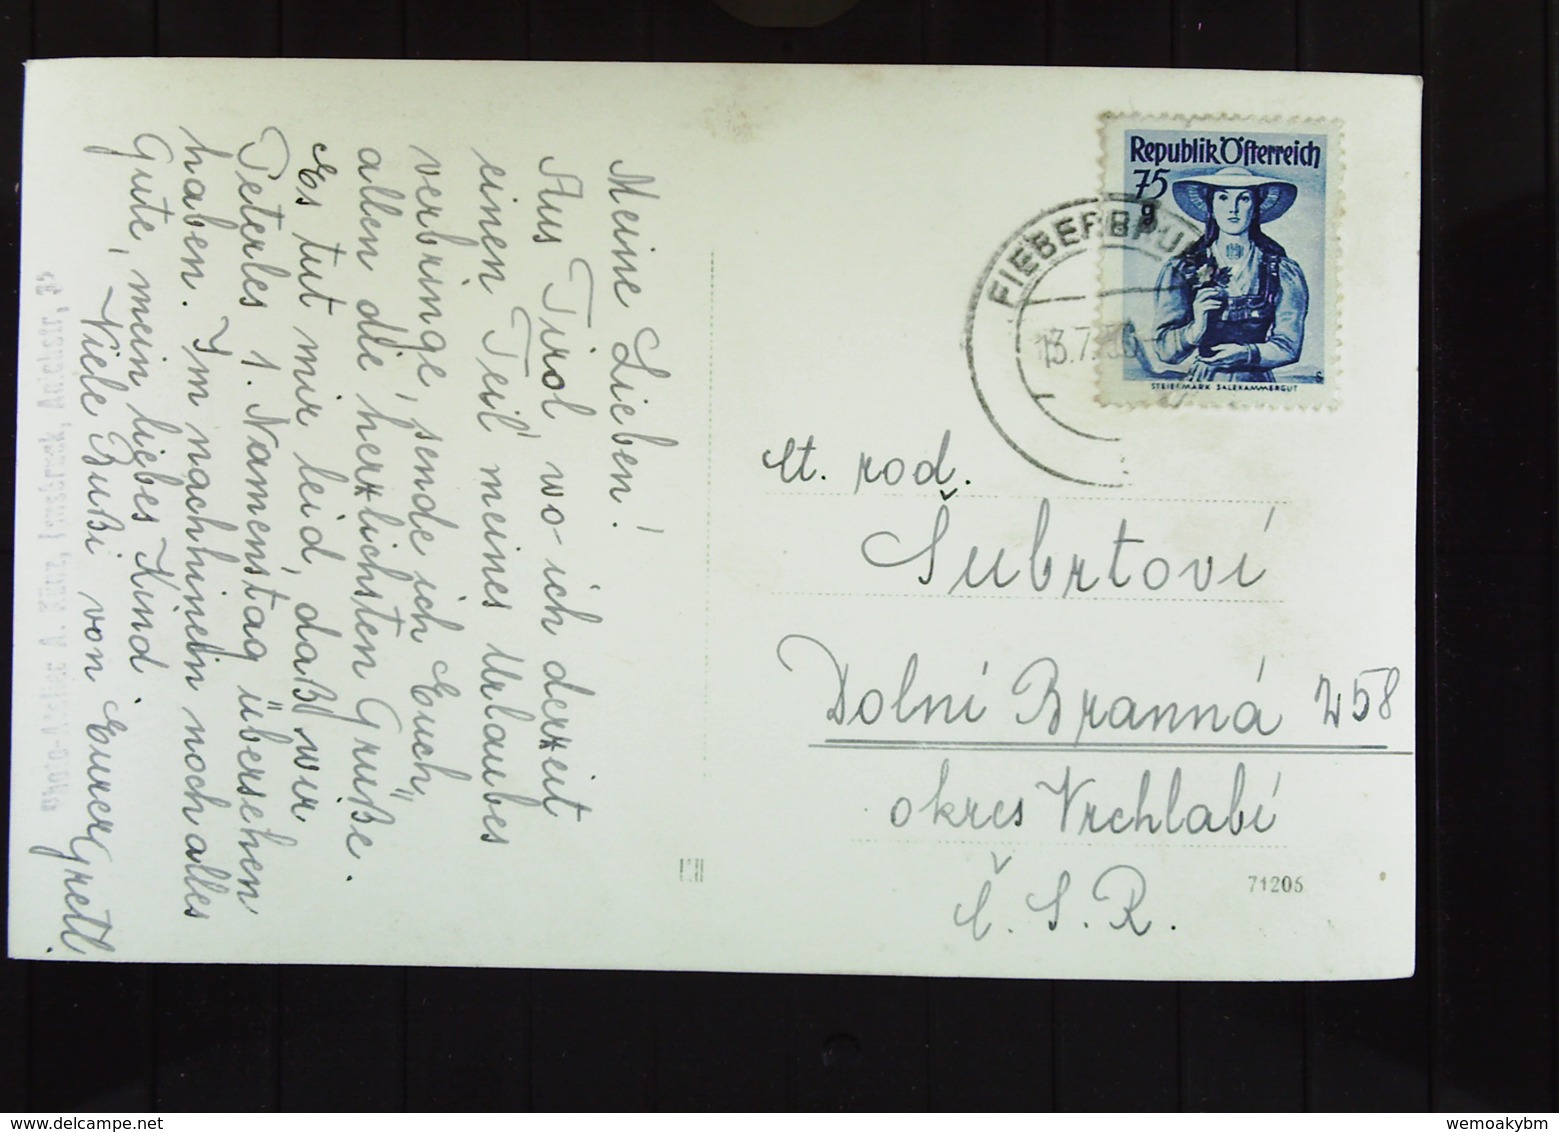 Meine Lieben!
Aus Tirol, wo ich derzeit
einen Teil meines Urlaubes
verbringe, sende ich Euch,
allen die herzlichsten Grüße.
Es tut mir leid, daß wir
Peterles 1. Namenstag übersehen
haben. Im nachhinein noch alles
Gute, mein liebes Kind.
Viele Bußi von Eurer Gretl.
Innsbruck, Anichstr,
Republik Österreich
75
g
STEIERMARK SALZKAMMERGUT
FIEBERBRU
13.7.
ct. rod.
Šubrtoví
Dolní Branná 258
okres Vrchlabí
Č. S. R.
71205
wemoakybm